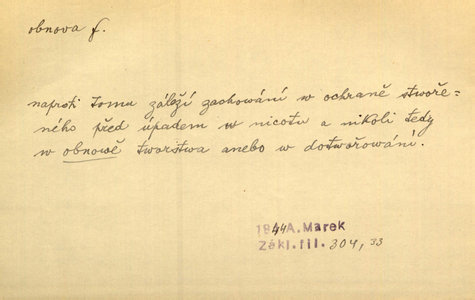 obnova f.
naproti tomu záleží zachowání w ochraně stwoře-
ného před úpadem w nicotu a nikoli tedy
w obnowě tworstwa anebo w dotwořowání.
1844 A. Marek
Zákl. fil. 304, 33